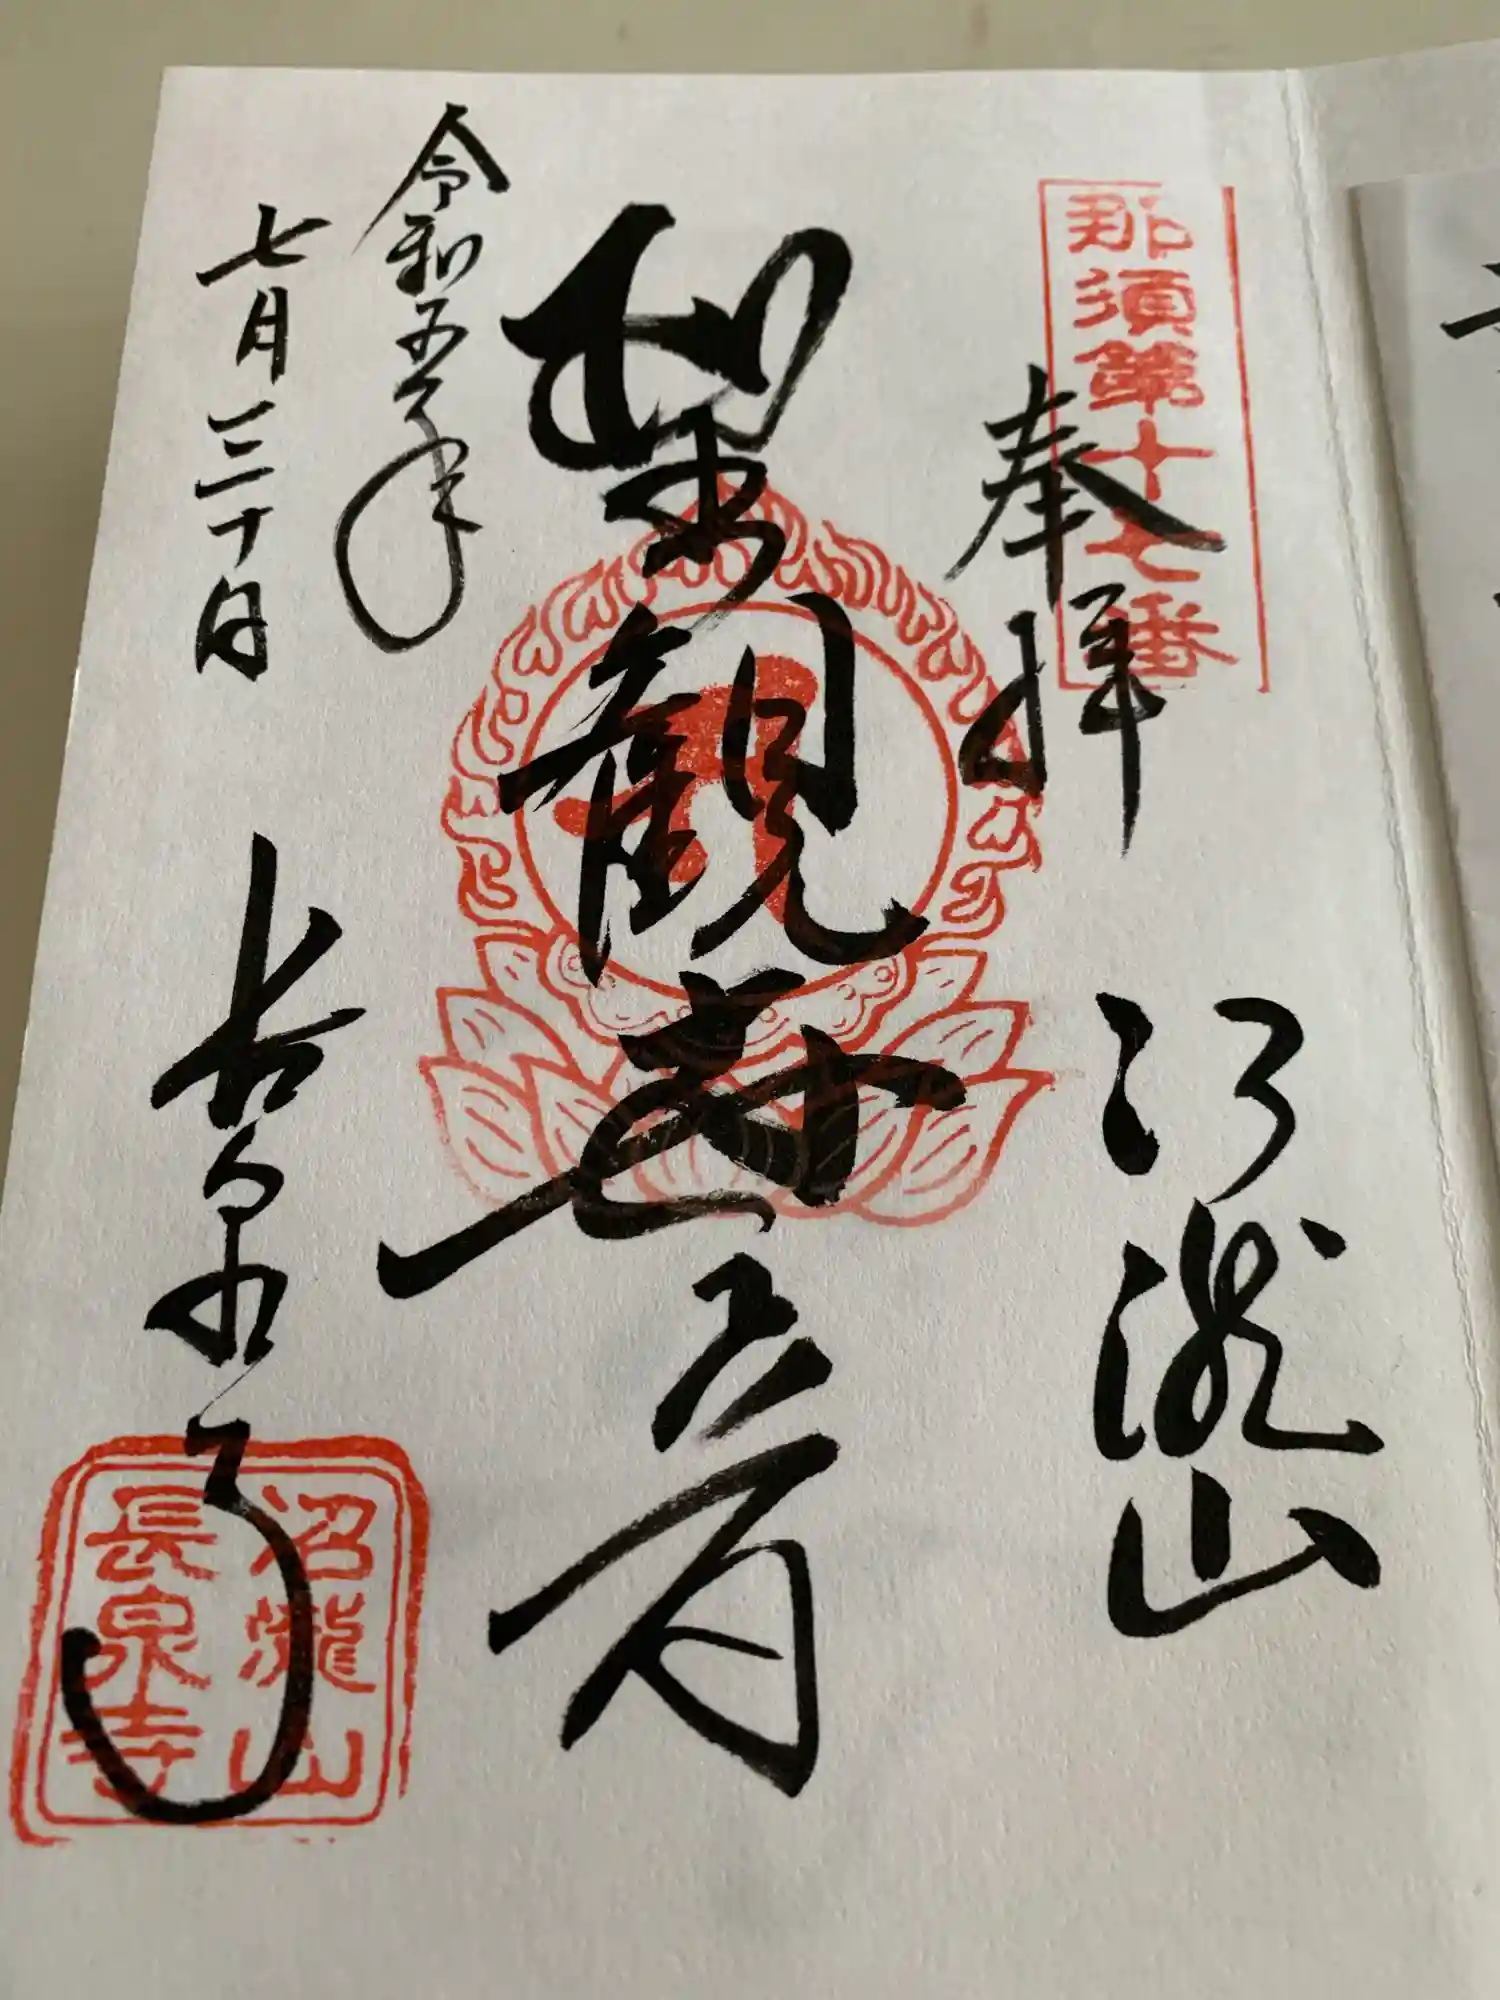 那須第十七番
奉拝
沼瀧山
聖観世音
令和五年
七月三十日
長泉寺
沼瀧山
長泉寺